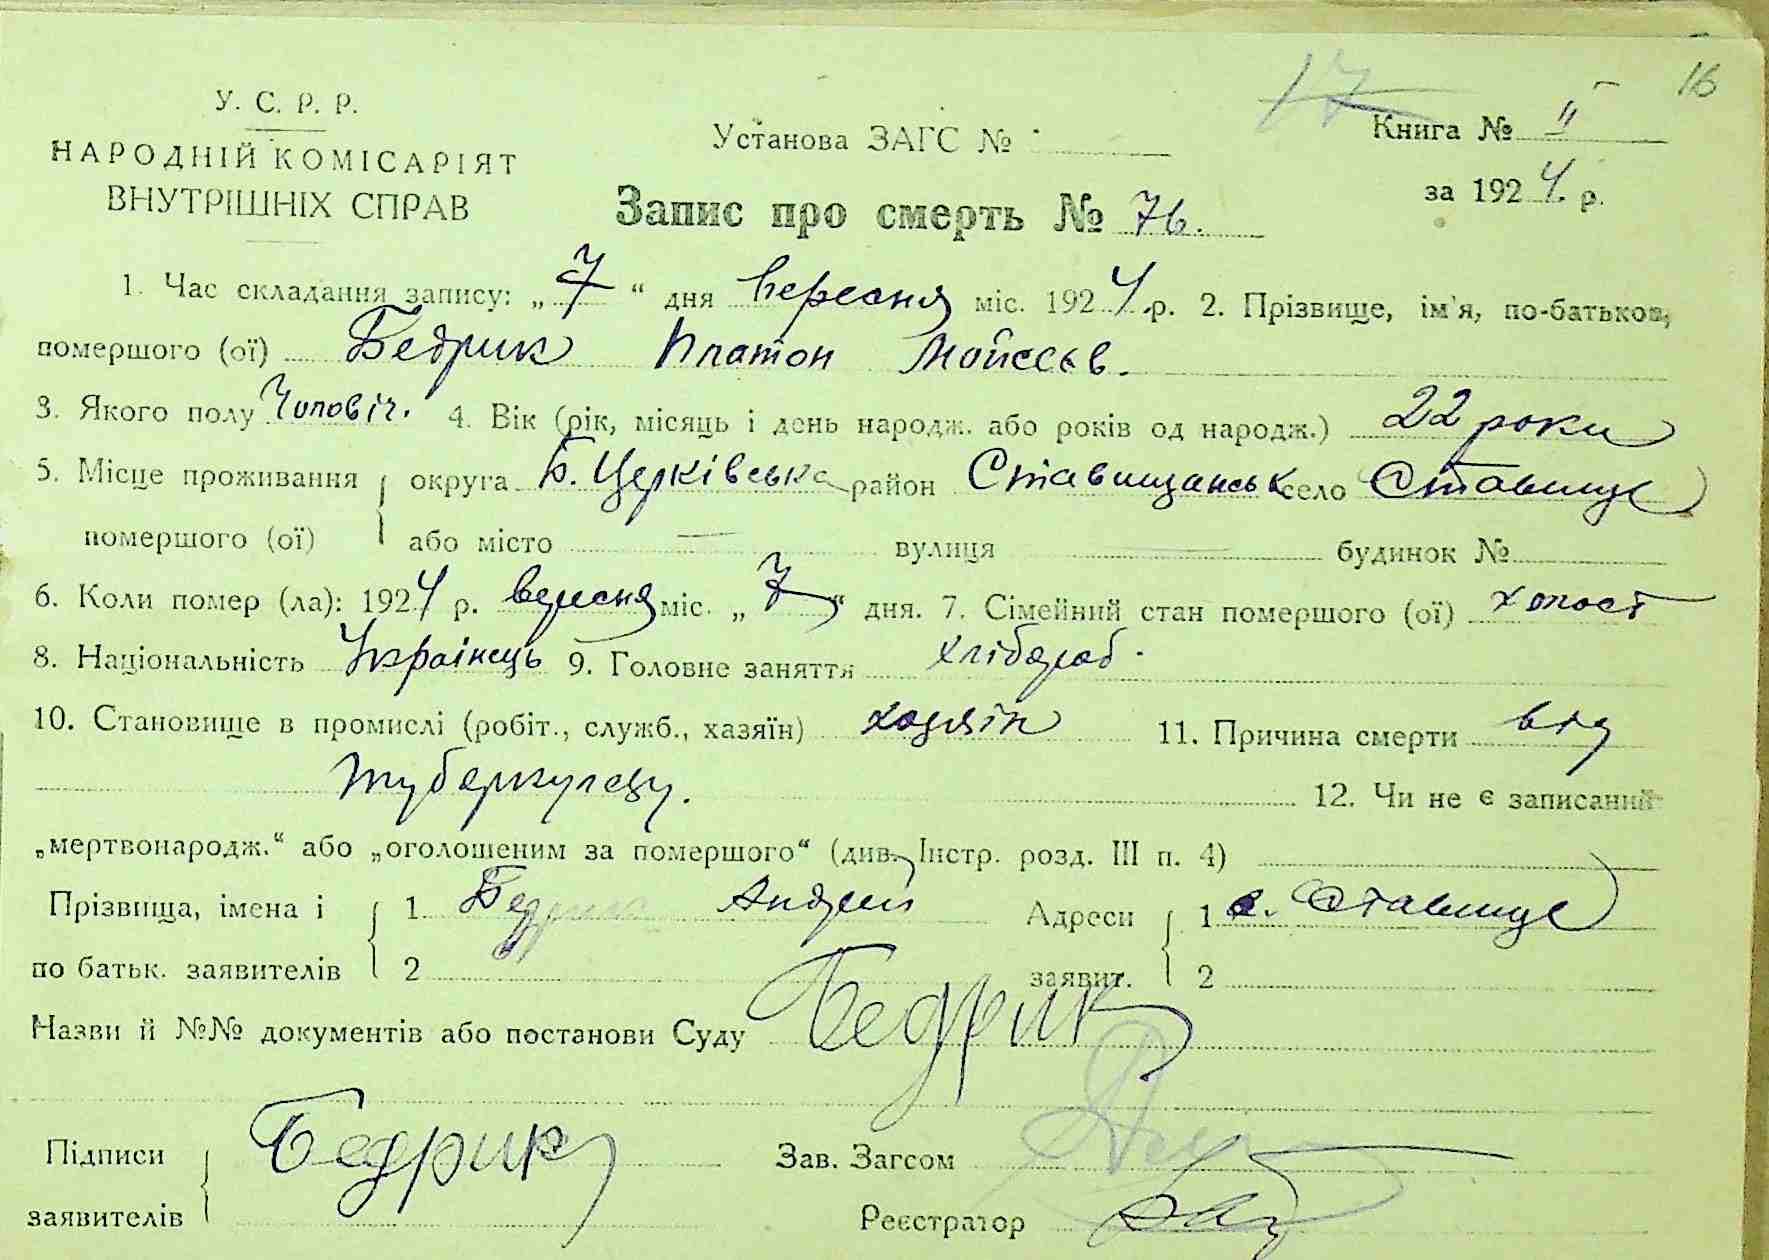 16
17
У. С. Р. Р.
НАРОДНІЙ КОМІСАРІЯТ
ВНУТРІШНІХ СПРАВ
Установа ЗАГС №
Книга № II
за 1924 р.
Запис про смерть № 76.
1. Час складання запису: „7“ дня вересня міс. 1924 р. 2. Прізвище, ім'я, по-батькові,
помершого (ої) Бедрик Платон Мойсєєв.
3. Якого полу Чоловіч. 4. Вік (рік, місяць і день народж. або років од народж.) 22 роки
5. Місце проживання округа Б. Церківська район Ставищанськ село Ставище
помершого (ої) або місто — вулиця — будинок №
6. Коли помер (ла): 1924 р. вересня міс. „7“ дня. 7. Сімейний стан помершого (ої) холост
8. Національність Українець 9. Головне заняття хлібороб.
10. Становище в промислі (робіт., служб., хазяїн) хазяїн 11. Причина смерти від
туберкулезу. 12. Чи не є записаний
„мертвонародж.“ або „оголошеним за помершого“ (див. Інстр. розд. III п. 4)
Прізвища, імена і 1 Бедрик Андрей Адреси 1 с. Ставище
по батьк. заявителів 2 заявит. 2
Назви й №№ документів або постанови Суду Бедрик
Підписи Бедрик Зав. Загсом
заявителів Реєстратор